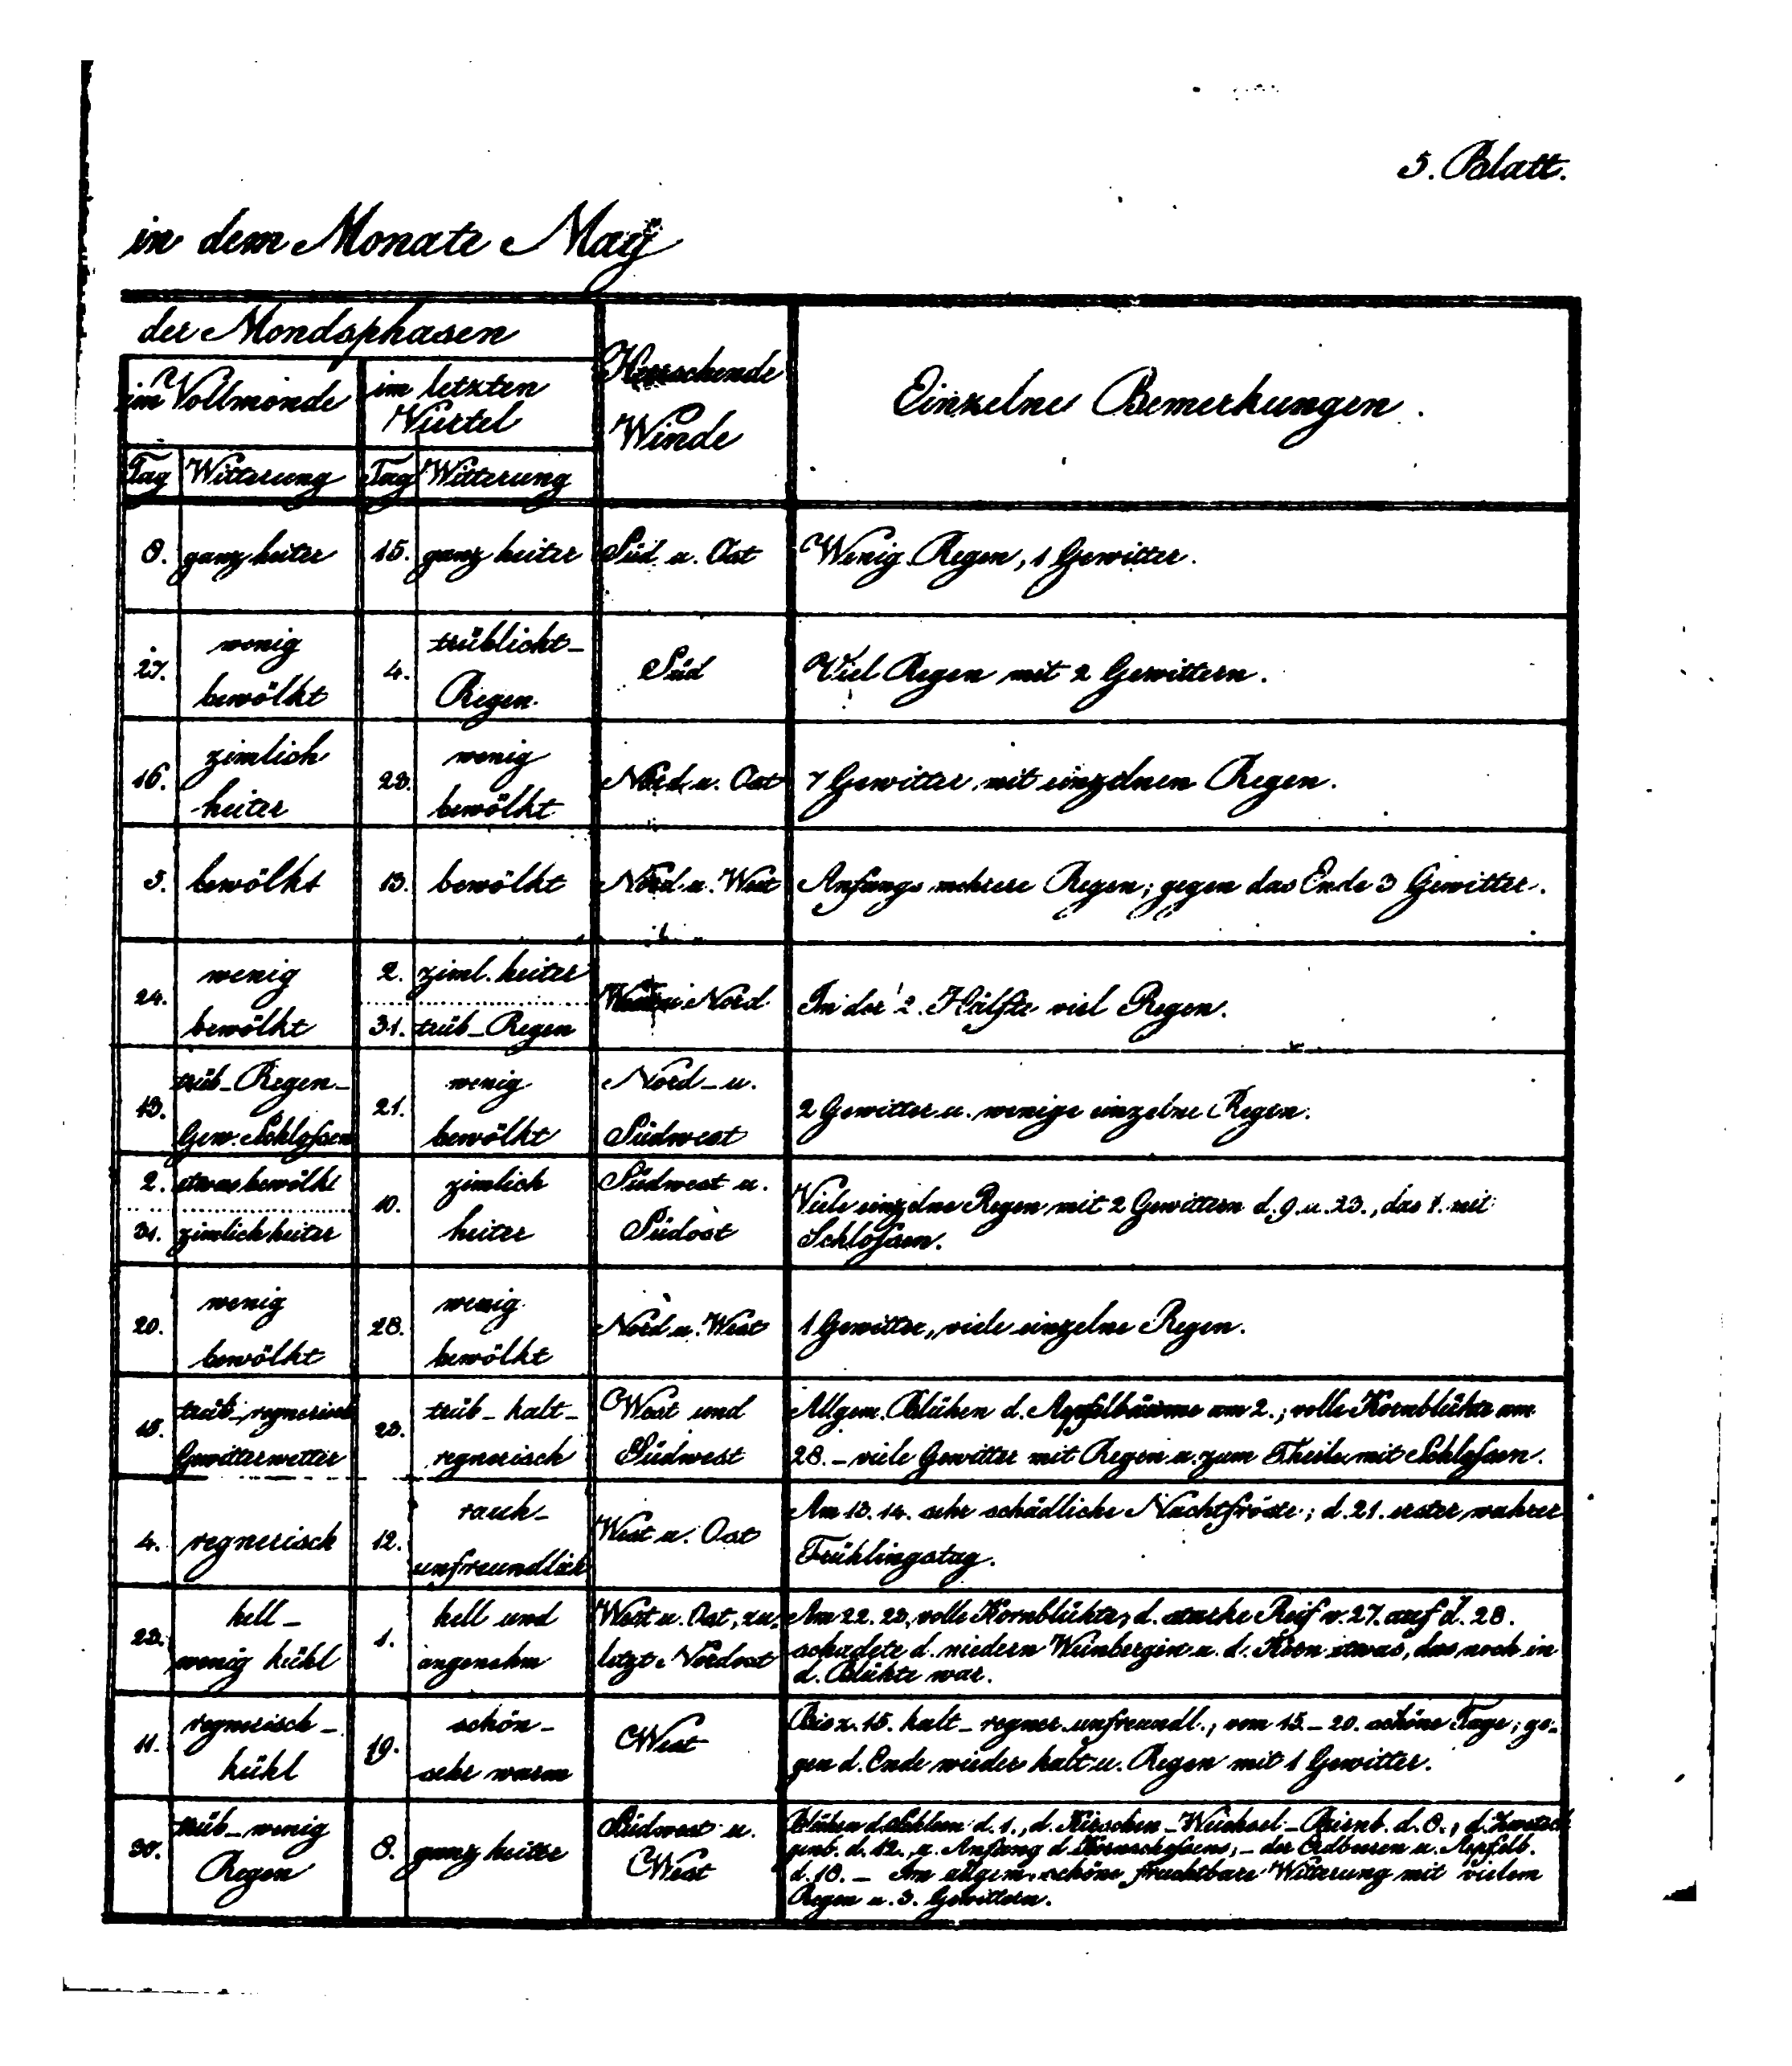 5. Blatt.
in dem Monate Maÿ
der Mondsphasen
im Vollmonde
im letzten
Viertel
Herrschende
Winde
Einzelne Bemerkungen.
Tag Witterung Tag Witterung
8. ganz heiter 15. ganz heiter Süd u. Ost Wenig Regen, 1 Gewitter.
27. wenig
bewölkt
4. trüblicht_
Regen.
Süd
Viel Regen mit 2 Gewittern.
16. zimlich
heiter
23. wenig
bewölkt
Nord u. Ost
7 Gewitter mit einzelnen Regen.
5. bewölkt 13. bewölkt Nord u. West Anfangs mehrere Regen; gegen das Ende 3 Gewitter.
24. wenig
bewölkt
2. ziml. heiter
31. trüb_Regen
Nord
In der 2. Hälfte viel Regen.
13. trüb_Regen_
Gew. Schloſsen
21. wenig
bewölkt
Nord_u.
Südwest
2 Gewitter u. wenige einzelne Regen.
2. etwas bewölkt
31. zimlich heiter
10. zimlich
heiter
Südwest u.
Südost
Viele einzelne Regen mit 2 Gewittern d. 9. u. 23., das 1. mit
Schloſsen.
20. wenig
bewölkt
28. wenig
bewölkt
Nord u. West
1 Gewitter, viele einzelne Regen.
15. trüb_regnerisch
Gewitterwetter
23. trüb_kalt_
regnerisch
West und
Südwest
Allgem. Blühen d. Aepfelbäume am 2.; volle Kornblühte am
28. _ viele Gewitter mit Regen u. zum Theile mit Schloſsen.
4. regnerisch
12. rauh_
unfreundlich
West u. Ost
Am 13. 14. sehr schädliche Nachtfröste; d. 21. erster wahrer
Frühlingstag.
23. hell_
wenig kühl
1. hell und
angenehm
West u. Ost, zu
letzt Nordost
Am 22. 23. volle Kornblühte, d. starke Reif v. 27. auf d. 28.
schadete d. niedern Weinbergen u. d. Korn etwas, das noch in
d. Blühte war.
11. regnerisch_
kühl
19. schön_
sehr warm
West
Bis z. 15. kalt_regner. unfreundl.; vom 15._20. schöne Tage; ge=
gen d. Ende wieder kalt u. Regen mit 1 Gewitter.
30. trüb_wenig
Regen
8. ganz heiter
Südwest u.
West
Blühen d. Schleen d. 1., d. Kirschen_Weichsel_Bienb. d. 8., d. Zwetsch
genb. d. 12., u. Anfang d. Kornschoſsens; _ der Erdbeeren u. Aepfelb.
d. 18. _ Im allgem. schöne fruchtbare Witterung mit vielem
Regen u. 3. Gewittern.